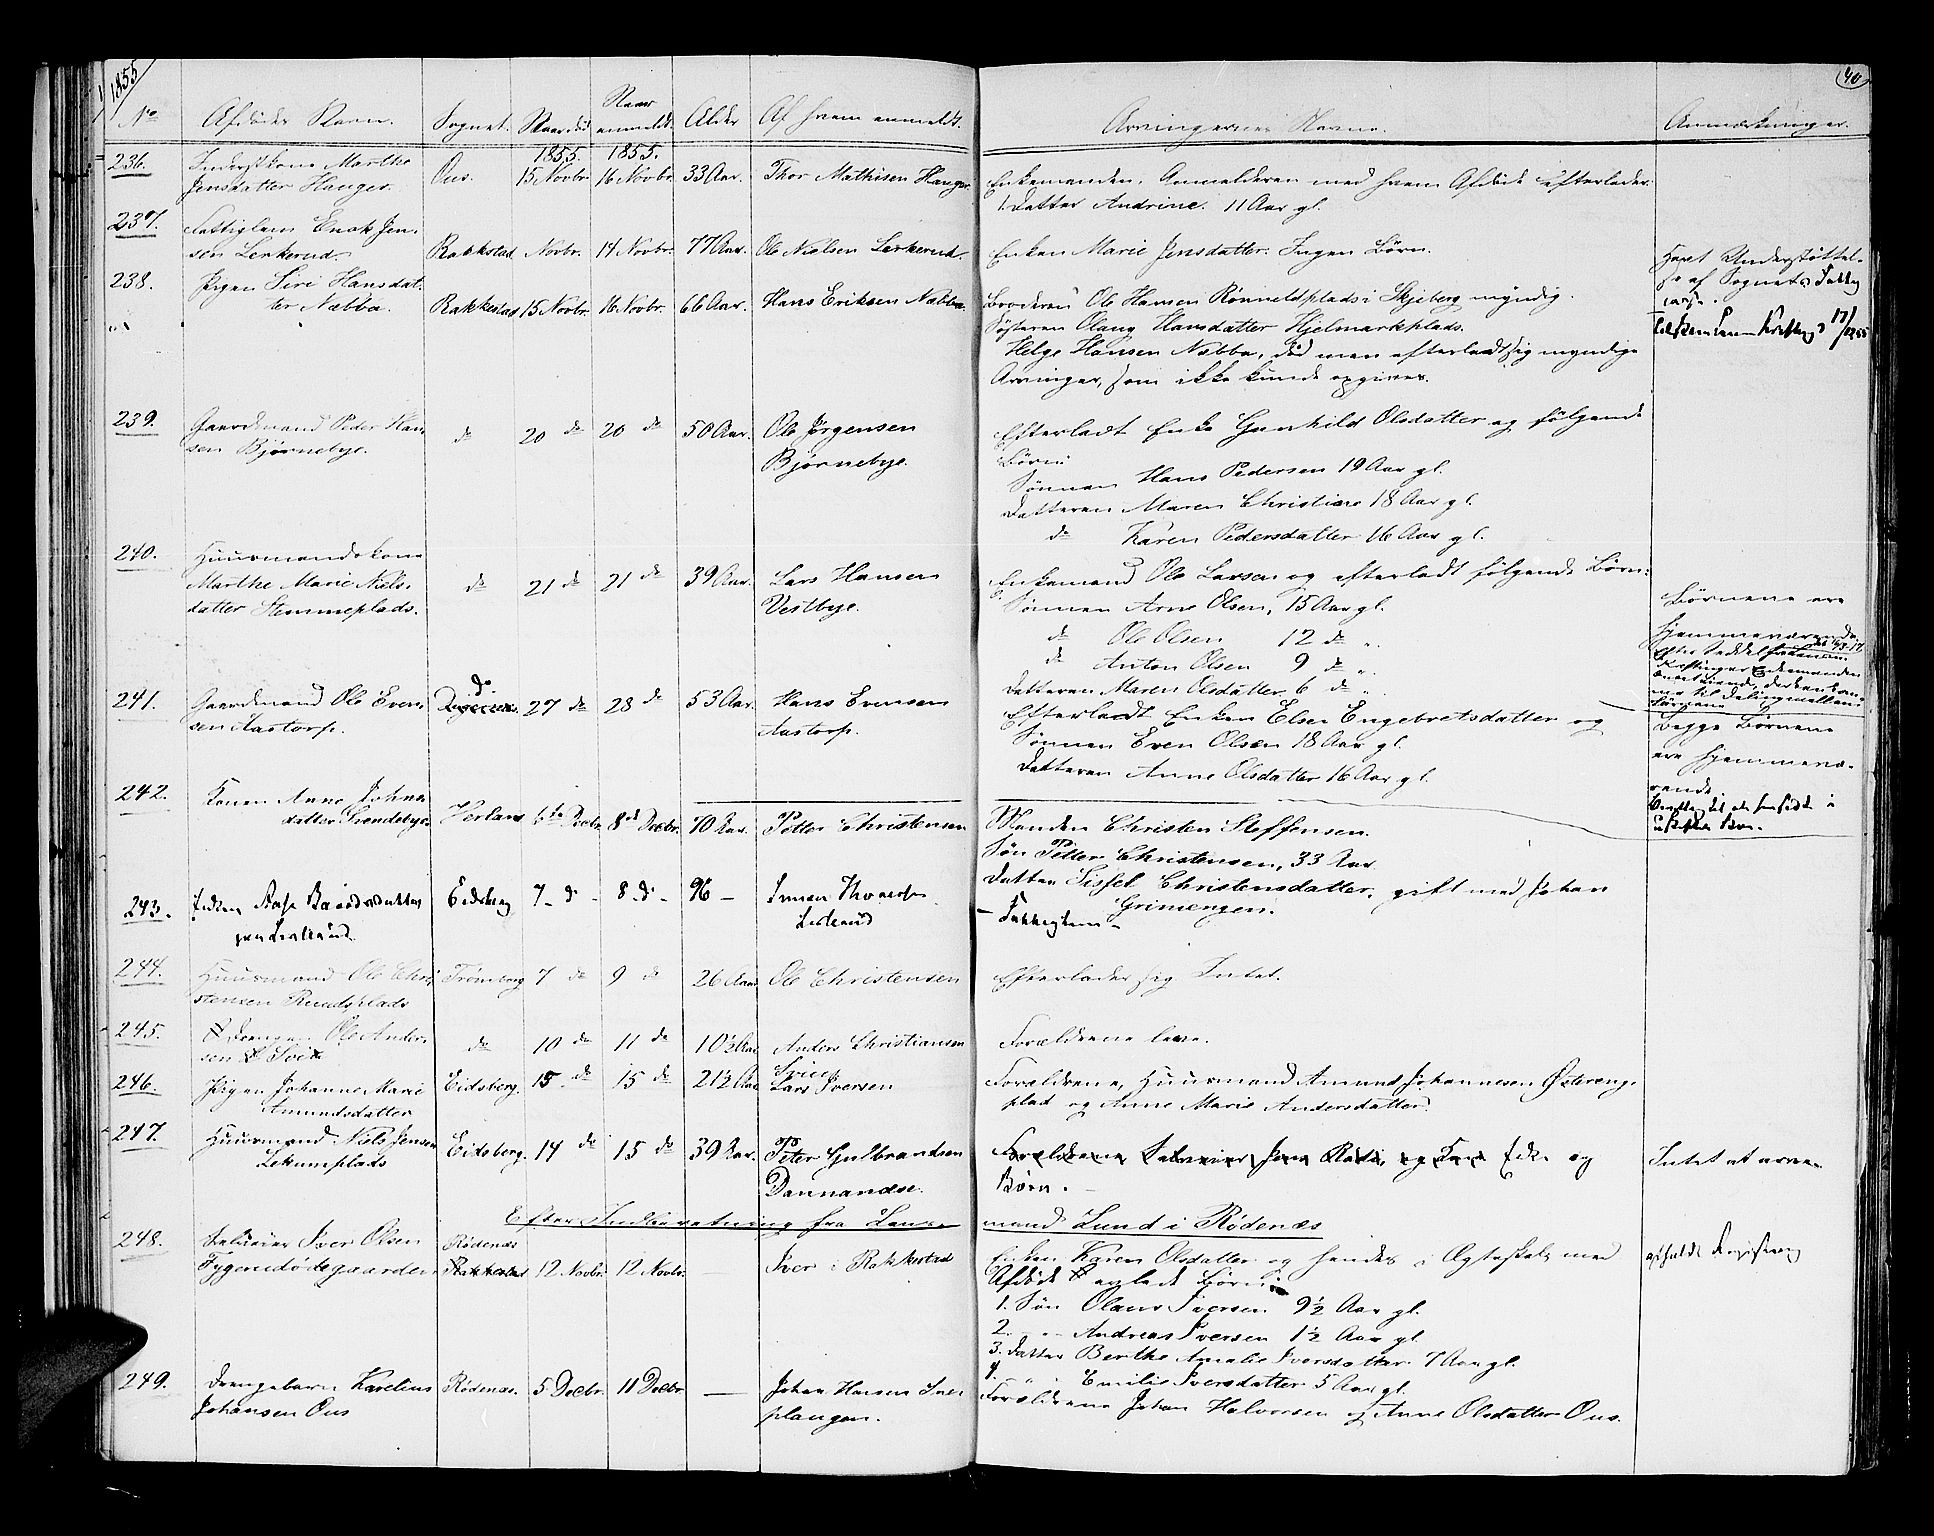 1855
40
No Afdødes Navn. Sognet. Naar død Naar anmeldt. Alder Af hvem anmeldt. Arvingernes Navne. Anmærkninger.
1855. 1855.
236. Inderstkone Marthe Ous. 15 Novbr. 16 Novbr. 33 Aar. Thor Mathisen Hauger. Enkemanden, Anmelderen med hvem Afdøde efterlader:
Jensdatter Hauger. 1 Datter Andrine. 11 Aar gl.
237. Fattiglem Enok Jen-
sen Lerkerud. Rakkestad Novbr. 14 Novbr. 77 Aar. Ole Nielsen Lerkerud. Enken Marie Jensdatter. Ingen Børn. Havt Understøttel-
se af Sognets Fattig
casse.
238. Pigen Siri Hansdat-
ter Næbba. Rakkestad 15 Novbr. 16 Novbr. 66 Aar. Hans Eriksen Næbba. Broderen Ole Hansen Rønneldplads i Skjeberg myndig.
Søsteren Olaug Hansdatter Hjelmarkplads.
Helge Hansen Næbba, død men efterladt sig myndige
Arvinger, som ikke kunde opgives.
239. Gaardmand Peder Han-
sen Bjørnebye. do 20 do 20 do 50 Aar. Ole Jørgensen Efterladt Enke Gunhild Olsdatter og følgende
Bjørnebye. Børn:
Sønnen Hans Pedersen 19 Aar gl.
Datteren Maren Christine 18 Aar gl.
do Karen Pedersdatter 16 Aar gl.
240. Huusmandskone
Marthe Marie Niels- do 21 do 21 do 39 Aar. Lars Hansen Enkemand Ole Larsen og efterladt følgende Børn:
datter Stemmeplads. Vestbye. Sønnen Arne Olsen, 15 Aar gl. Børnene ere
do Ole Olsen 12 do " hjemmeværende
do Anton Olsen 9 do "
Datteren Maren Olsdatter 6 do "
241. Gaardmand Ole Even- do 27 do 28 do 53 Aar. Hans Evensen Efterladt Enken Else Engebretsdatter og
sen Aastorp. Aastorp. Sønnen Even Olsen 18 Aar gl. Begge Børnene
Datteren Anne Olsdatter 16 Aar gl. ere hjemmevæ-
rende.
242. Konen Anne Johns-
datter Trendebye. Herland 6te Decbr. 8de Decbr. 70 Aar. Petter Christensen Manden Christen Steffensen.
Søn Petter Christensen, 33 Aar
Datter Sissel Christensdatter, gift med Johan
Grimengen.
243. Enken Aase Baardsdatter Eidsberg 7 - d - 8 - d - 96 - Fattiglem -
244. Huusmand Ole Chri- Trømborg 7 do 9 do 26 Aar Ole Christensen Efterlader sig Intet.
stensen Ruudsplads
245. Drengen Ole Ander- do 10 do 11 do 10½ Aar Anders Christiansen Forældrene leve.
sen Svik Svien
246. Pigen Johanne Marie Eidsberg. 15 do 15 do 21½ Aar Lars Iversen Forældrene, Huusmand Amund Johannesen Østereng-
Amundsdatter plad og Anne Marie Andersdatter.
247. Huusmand Niels Jensen Eidsberg. 14 do 15 do 39 Aar. Peter Gulbrandsen Enke og Intet at arve.
Lekumplads Dannandse. Børn.
Efter Indberetning fra Lens-mand Lund i Rødenæs
248. Selveier Iver Olsen Rødenæs
Tygerudødegaarden Rakkestad 12 Novbr. 12 Novbr. — Iver i Rakkestad Enken Karen Olsdatter og hendes i Ægteskab med afholdt Registrering
Afdøde avlede Børn:
1. Søn Olaus Iversen 9½ Aar gl.
2. " - Andreas Iversen 1½ Aar gl.
3. Datter Berthe Amalie Iversdatter. 7 Aar gl.
4. " Emilie Iversdatter 5 Aar gl.
249. Drengebarn Karelius Rødenæs. 5 Decbr. 11 Decbr. — Johan Hansen Forældrene Johan Halvorsen og Anne Olsdatter Ous.
Johansen Ous plangen.